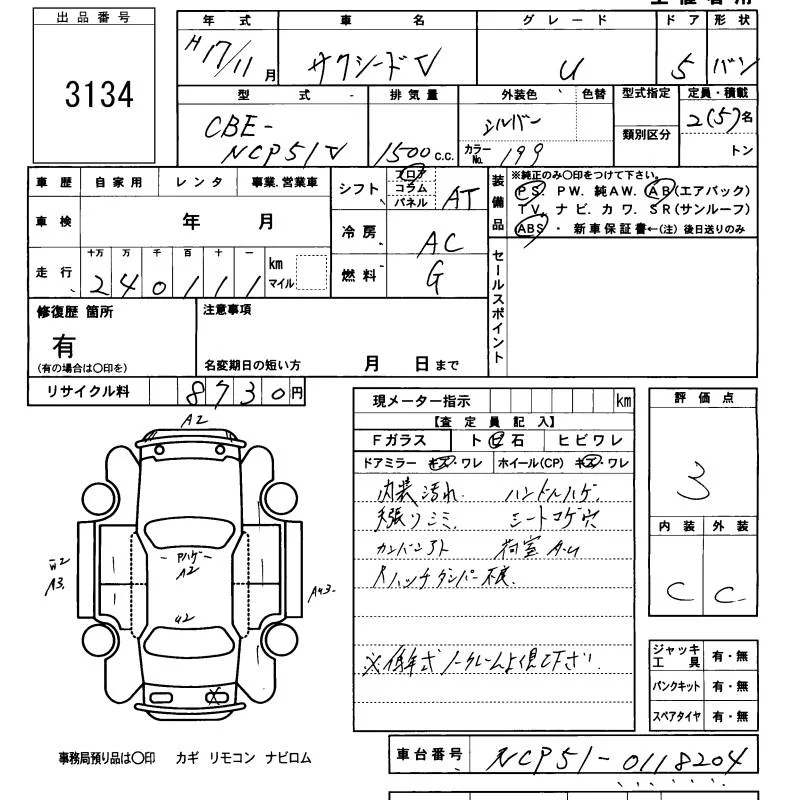 出品番号
3134
年式 車名 グレード ドア 形状
H17/11月 サクシードV U 5 バン
型式 排気量 外装色 色替 型式指定 定員・積載
CBE-
NCP51V 1500c.c. シルバー
カラーNo. 199 類別区分 2(5)名
トン
車歴 自家用 レンタ 事業、営業車
車検 年 月
走行 十万 万 千 百 十 一
240111 km マイル
シフト フロア コラム パネル AT
冷房 AC
燃料 G
装備品
※純正のみ〇印をつけて下さい。
PS. PW. 純AW. AB(エアバック)
TV. ナビ. カワ. SR(サンルーフ)
ABS・ 新車保証書←(注) 後日送りのみ
セールスポイント
修復歴 箇所
有
(有の場合は〇印を)
注意事項
名変期日の短い方 月 日まで
リサイクル料 8730円
現メーター指示 km
【査定員記入】
Fガラス ト 石 ヒビワレ
ドアミラー キズ・ワレ ホイール(CP) キズ・ワレ
内装汚れ. ハンドルハゲ.
天張りシミ. シートコゲ穴
カンバンアト 荷室A.U
Rハッチダンパー不良.
※低年式ノークレーム
評価点
3
内装 外装
C C
A2
W2
A3.
Pハゲ
A2
U2
ジャッキ工具 有・無
パンクキット 有・無
スペアタイヤ 有・無
事務局預り品は〇印 カギ リモコン ナビロム
車台番号 NCP51-0118204